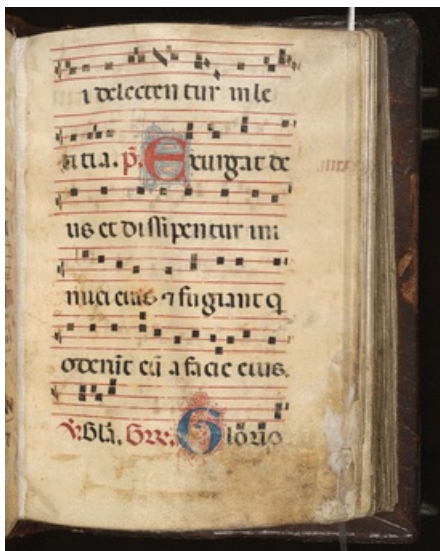 i delecten tur in le
ti tia. p̄. Exurgat de
us et dissipentur ini
mici eius ⁊ fugiant q
oderūt eū a facie eius.
℣. Gl̄a. Grẽ. Glorio